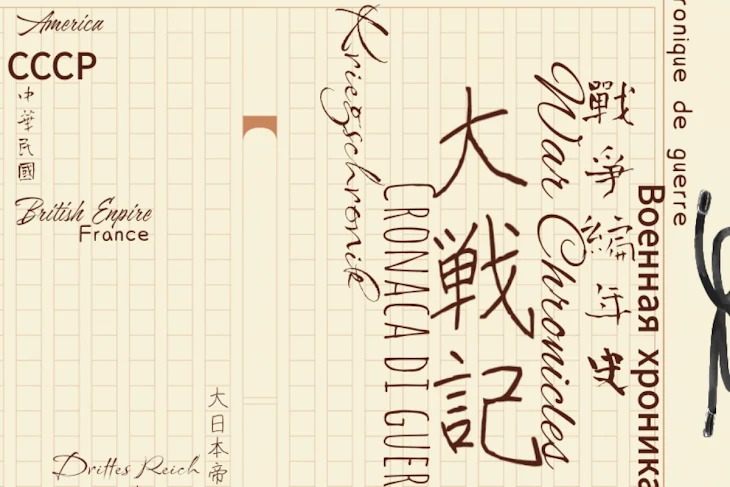 America
CCCP
中華民國
British Enpire
France
Drittes Reich
大日本帝
Kriegschronik
CRONACA DI GUER
大戦記
War Chronicles
戰爭編年史
Военная хроника
ronique de guerre